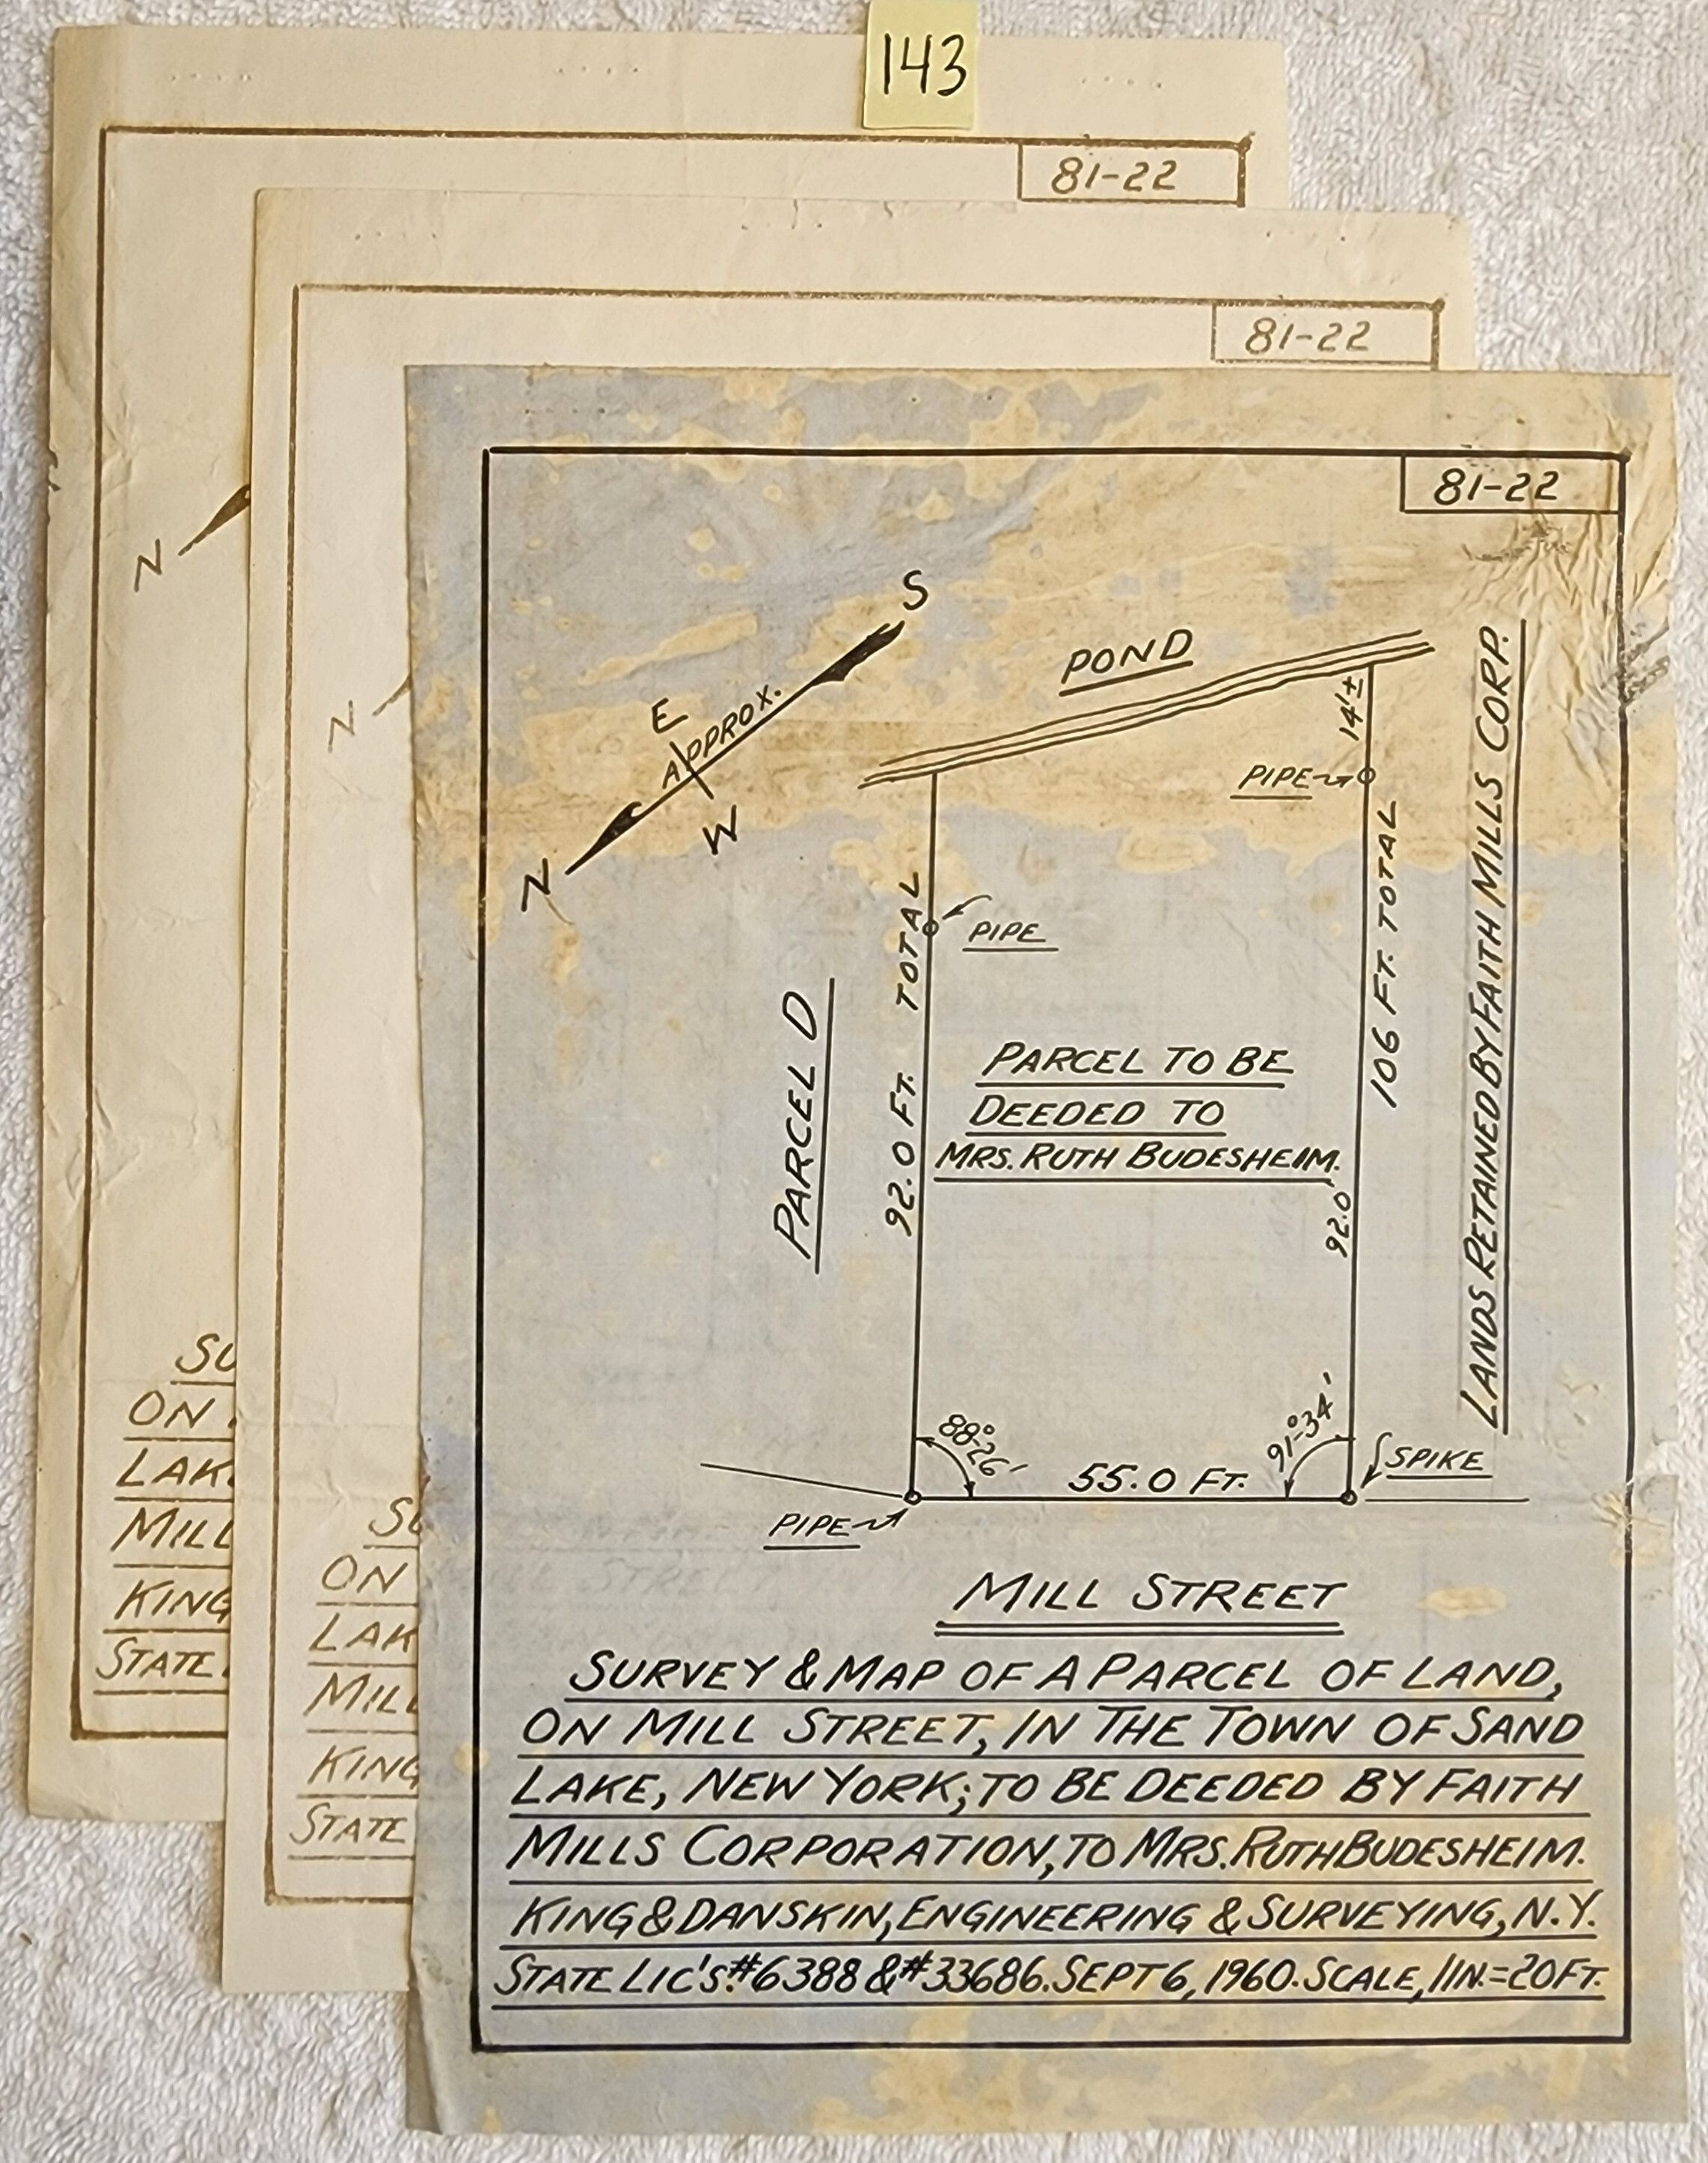 143
81-22
81-22
81-22
N
N
S
E
APPROX.
W
N
POND
14'±
PIPE
PIPE
92.0 FT. TOTAL
106 FT. TOTAL
PARCEL D
LANDS RETAINED BY FAITH MILLS CORP.
PARCEL TO BE
DEEDED TO
MRS. RUTH BUDESHEIM.
92.0'
88°-26'
91°-34'
55.0 FT.
SPIKE
PIPE
MILL STREET
SURVEY & MAP OF A PARCEL OF LAND,
ON MILL STREET, IN THE TOWN OF SAND
LAKE, NEW YORK; TO BE DEEDED BY FAITH
MILLS CORPORATION, TO MRS. RUTH BUDESHEIM.
KING & DANSKIN, ENGINEERING & SURVEYING, N.Y.
STATE LIC'S. #6388 & #33686. SEPT 6, 1960. SCALE, 1 IN. = 20 FT.
SU
ON
LAK
MILL
KING
STATE
SU
ON
LAK
MILL
KING
STATE